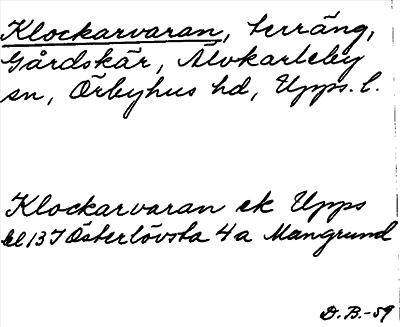 Klockarvaran, terräng,
Gårdskär, Älvkarleby
sn, Örbyhus hd, Upps. l.
Klockarvaran ek Upps
bl 13 I Österlövsta 4a Mangrund
D.B.-59